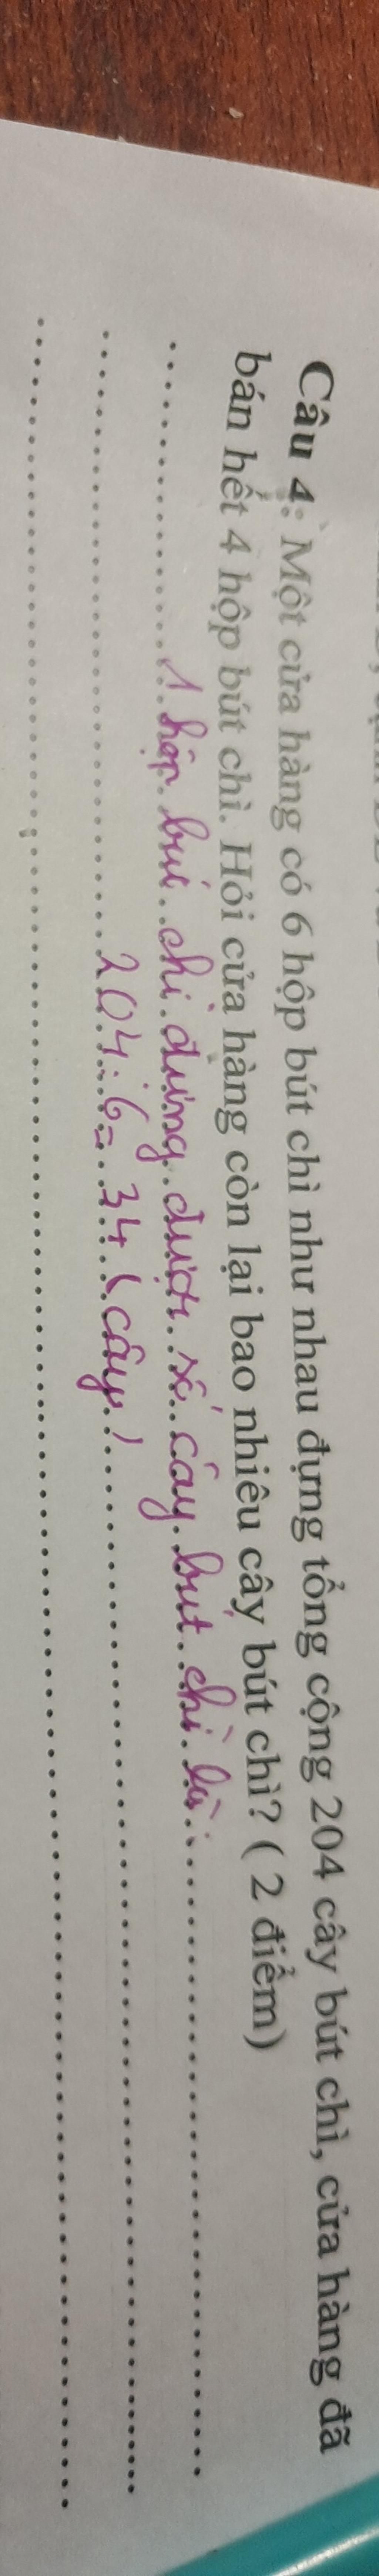 Câu 4: Một cửa hàng có 6 hộp bút chì như nhau đựng tổng cộng 204 cây bút chì, cửa hàng đã
bán hết 4 hộp bút chì. Hỏi cửa hàng còn lại bao nhiêu cây bút chì? ( 2 điểm)
1 hộp bút chì đựng được số cây bút chì là:
204 : 6 = 34 (cây)